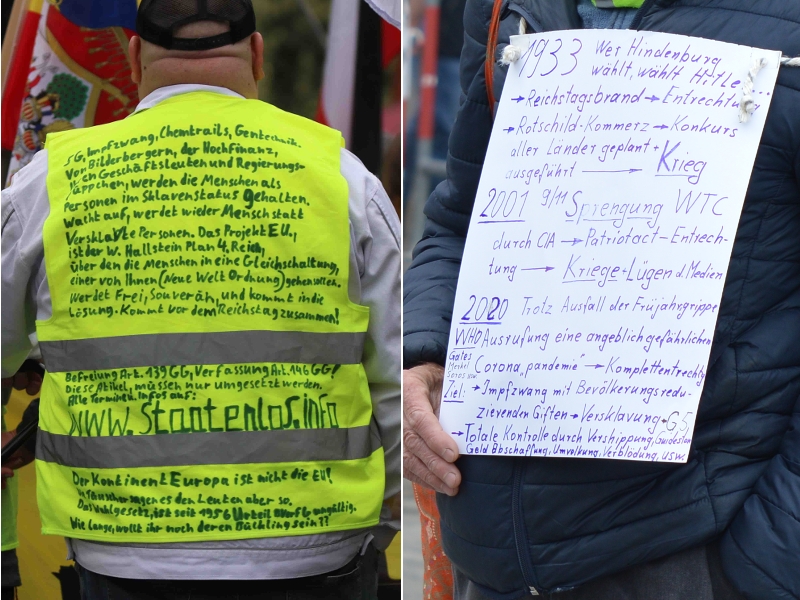 5G, Impfzwang, Chemtrails, Gentechnik.
Von Bilderbergern, der Hochfinanz,
Geschäftsleuten und Regierungs-
püppchen, werden die Menschen als
Personen im Sklavenstatus gehalten.
Wacht auf, werdet wieder Mensch statt
Versklavte Personen. Das Projekt EU.,
ist der W. Hallstein Plan 4. Reich,
über den die Menschen in eine Gleichschaltung,
einer von Ihnen (Neue Welt Ordnung) gehen sollen.
Werdet Frei, Souverän, und kommt in die
Lösung. Kommt vor dem Reichstag zusammen!
Befreiung Art. 139 GG, Verfassung Art. 146 GG!
Diese Artikel, müssen nur umgesetzt werden.
Alle Termine u. Infos auf:
www.Staatenlos.info
Der Kontinent Europa ist nicht die EU!
Täuscher sagen es den Leuten aber so.
Das Wahlgesetz, ist seit 1956 Urteil ungültig.
Wie lange, wollt ihr noch deren Bückling sein??
1933 Wer Hindenburg
wählt, wählt Hitle...
→ Reichstagsbrand → Entrechtung
→ Rotschild-Kommerz → Konkurs
aller Länder geplant +
ausgeführt → Krieg
2001 9/11 Sprengung WTC
durch CIA → Patriotact – Entrech-
tung → Kriege + Lügen d. Medien
2020 Trotz Ausfall der Früjahrgrippe
WHO Ausrufung eine angeblich gefährlichen
Gates
Merkel Corona „pandemie" → Komplettentrechtg
Soros usw
Ziel: → Impfzwang mit Bevölkerungsredu-
zierenden Giften → Versklavung - G5,
→ Totale Kontrolle durch Vershippung, Guidestone
Geld Abschaffung, Umvolkung, Verblödung, usw.